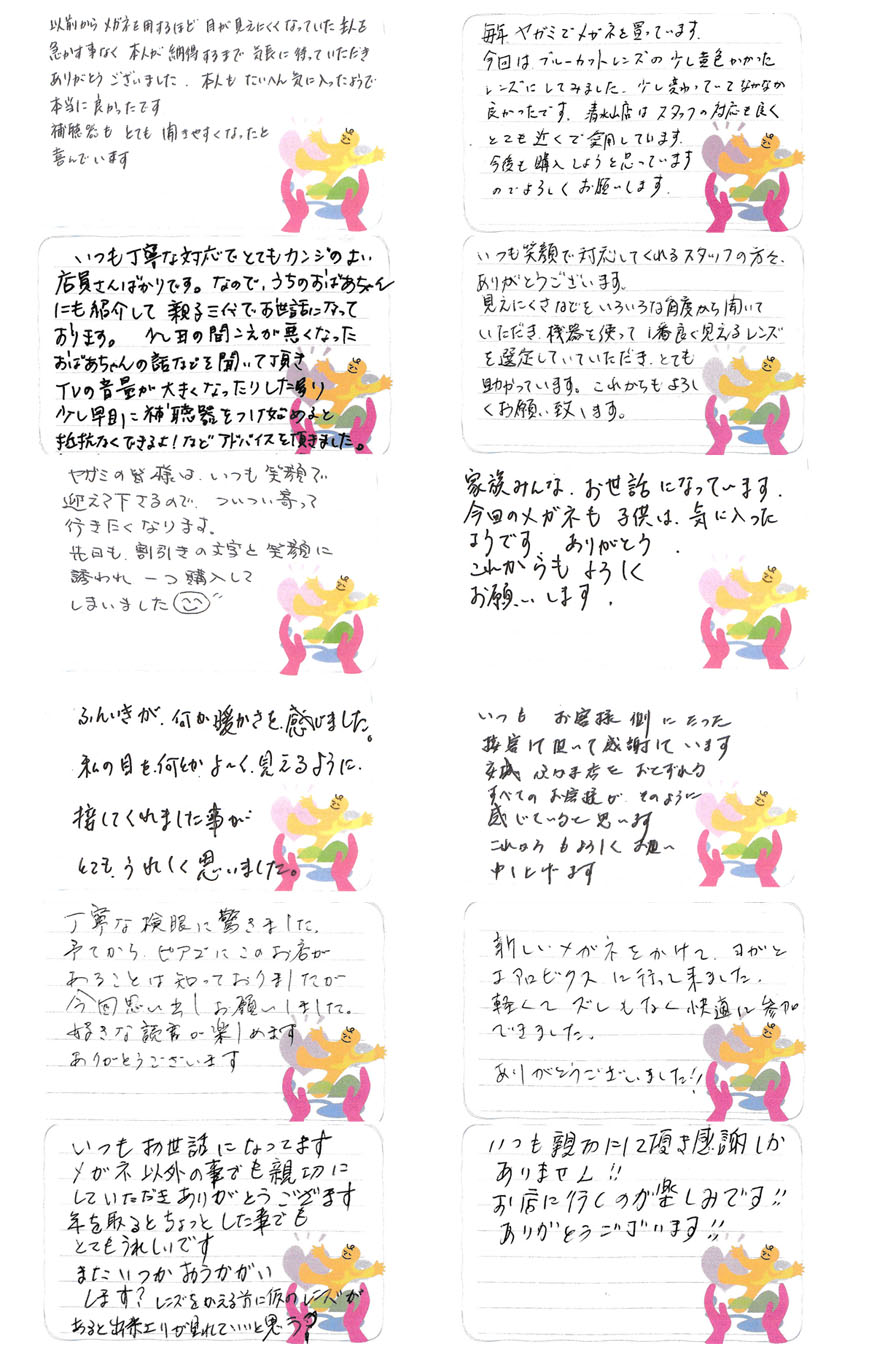 以前からメガネを用するほど 目が見えにくくなっていた主人を
急かす事なく 本人が納得するまで 気長に待っていただき
ありがとうございました。本人も たいへん気に入ったようで
本当に良かったです
補聴器も とても 聞きやすくなったと
喜んでいます
毎年 ヤガミでメガネを買っています。
今回は ブルーカットレンズの 少し黄色かかった
レンズにしてみました。少し変わっていてなかなか
良かったです。清水山店は スタッフの対応も良く
とても近くで愛用しています。
今後も購入しようと思っています
のでよろしくお願いします。
いつも丁寧な対応でとてもカンジのよい
店員さんばかりです。なので、うちのおばあちゃん
にも紹介して 親子三代でお世話になって
おります。 先日の聞こえが悪くなった
おばあちゃんの話などを聞いて頂き
TVの音量が大きくなったりした時
少し早目に補聴器をつけ始めると
抵抗なくできるよ!などアドバイスを頂きました。
いつも笑顔で対応してくれるスタッフの方々、
ありがとうございます。
見えにくさなどをいろいろな角度から聞いて
いただき、機器を使って1番良く見えるレンズ
を選定していていただき、とても
助かっています。これからもよろし
くお願い致します。
ヤガミの皆様は、いつも笑顔で
迎えて下さるので、ついつい寄って
行きたくなります。
先日も、割引きの文字と笑顔に
誘われ 一つ購入して
しまいました
家族みんな、お世話になっています。
今回のメガネも 子供は、気に入った
ようです ありがとう
これからも よろしく
お願いします。
ふんいきが、何か暖かさを、感じました。
私の目を何とか よ〜く、見えるように、
接してくれました事が
とても、うれしく思いました。
いつも お客様側にたった
接客をして頂いて感謝しています
すべてのお客様が そのように
感じていると思います
これからもよろしくお願い
申し上げます
丁寧な検眼に驚きました。
予てから、ピアゴにこのお店が
あることは知っておりましたが
今回思い出しお願いしました。
好きな読書が楽しめます
ありがとうございます
新しいメガネをかけて、ヨガと
エアロビクスに行って来ました。
軽くて ズレもなく快適に参加
できました。
ありがとうございました!!
いつもお世話になってます
メガネ以外の事でも親切に
していただきありがとうござます
年を取るとちょっとした事でも
とてもうれしいです
またいつかおうかがい
します? レンズをかえる前に仮のレンズが
あると出来上りが見れていいと思う?
いつも親切にして頂き感謝しか
ありません!!
お店に行くのが楽しみです!!
ありがとうございます!!